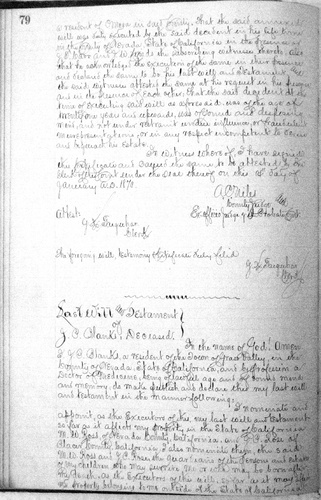 79
resident of Omega in said County, that the said annexed
will was duly executed by the said decedent in his life time
in the County of Nevada, State of California in the presence of
as subscribing witnesses thereto also
that he acknowledged the execution of the same in their presence
and declared the same to be his last will and testament and
the said witnesses attested the same at his request in his presence
and in the presence of each other, that the said decedent at the
time of executing said will as aforesaid, was of the age of
years and upwards, was of sound and disposing
mind, and not under restraint undue influence, or fraudulent
misrepresentations, or in any respect incompetent to devise
and bequeath his estate.
In witness whereof, I have signed
this certificate and caused the same to be attested by the
Clerk of the Court under the seal thereof on this day of
January A.D. 1870.
A. C. Niles
County Judge and
Ex officio Judge of the Probate Court
Attest
Clerk
The foregoing will, testimony &c
Clerk
Last Will and Testament
of
J. P. Clark, Deceased.
In the name of God, Amen
I, J. P. Clark, a resident of the Town of Grass Valley, in the
County of Nevada, State of California, and by profession a
Doctor of Medicine, being of lawful age and of sound mind
and memory, do make publish and declare this my last will
and testament in the manner following:
I nominate and
appoint, as the Executors of this my last will and testament
so far as it affects my property in the State of California
M. W. Ross of Nevada County, California, and J. C. Ross of
County, California. I also nominate them, the said
M. W. Ross and J. C. Ross, the Guardians of the Persons and Estates
of my children who may survive me or who may be born after
my death. As the Executors of this will, so far as it may affect
the property belonging to me outside of the State of California